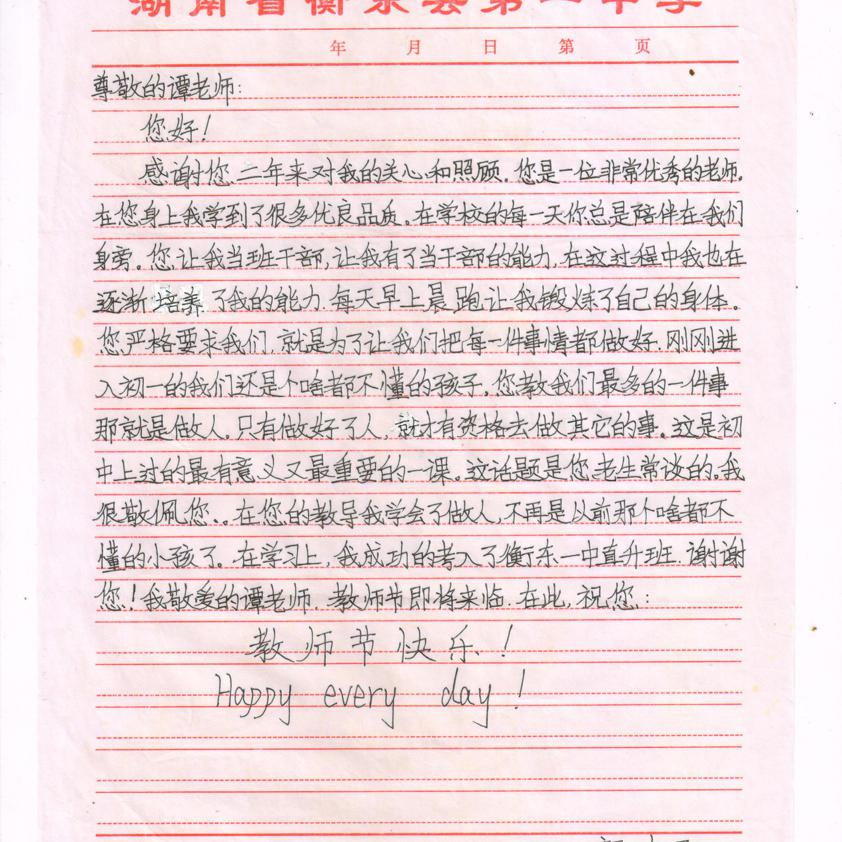 湖南省衡东县第一中学
年 月 日 第 页
尊敬的谭老师:
您好!
感谢您.二年来对我的关心和照顾.您是一位非常优秀的老师.
在您身上我学到了很多优良品质.在学校的每一天你总是陪伴在我们
身旁.您让我当班干部,让我有了当干部的能力.在这过程中我也在
逐渐培养了我的能力.每天早上晨跑让我锻炼了自己的身体。
您严格要求我们,就是为了让我们把每一件事情都做好.刚刚进
入初一的我们还是个啥都不懂的孩子.您教我们最多的一件事
那就是做人.只有做好了人,就才有资格去做其它的事.这是初
中上过的最有意义又最重要的一课。这话题是您老生常谈的.我
很敬佩您..在您的教导我学会了做人,不再是以前那个啥都不
懂的小孩了.在学习上,我成功的考入了衡东一中直升班.谢谢
您!我敬爱的谭老师.教师节即将来临.在此,祝您:
教师节快乐!
Happy every day!